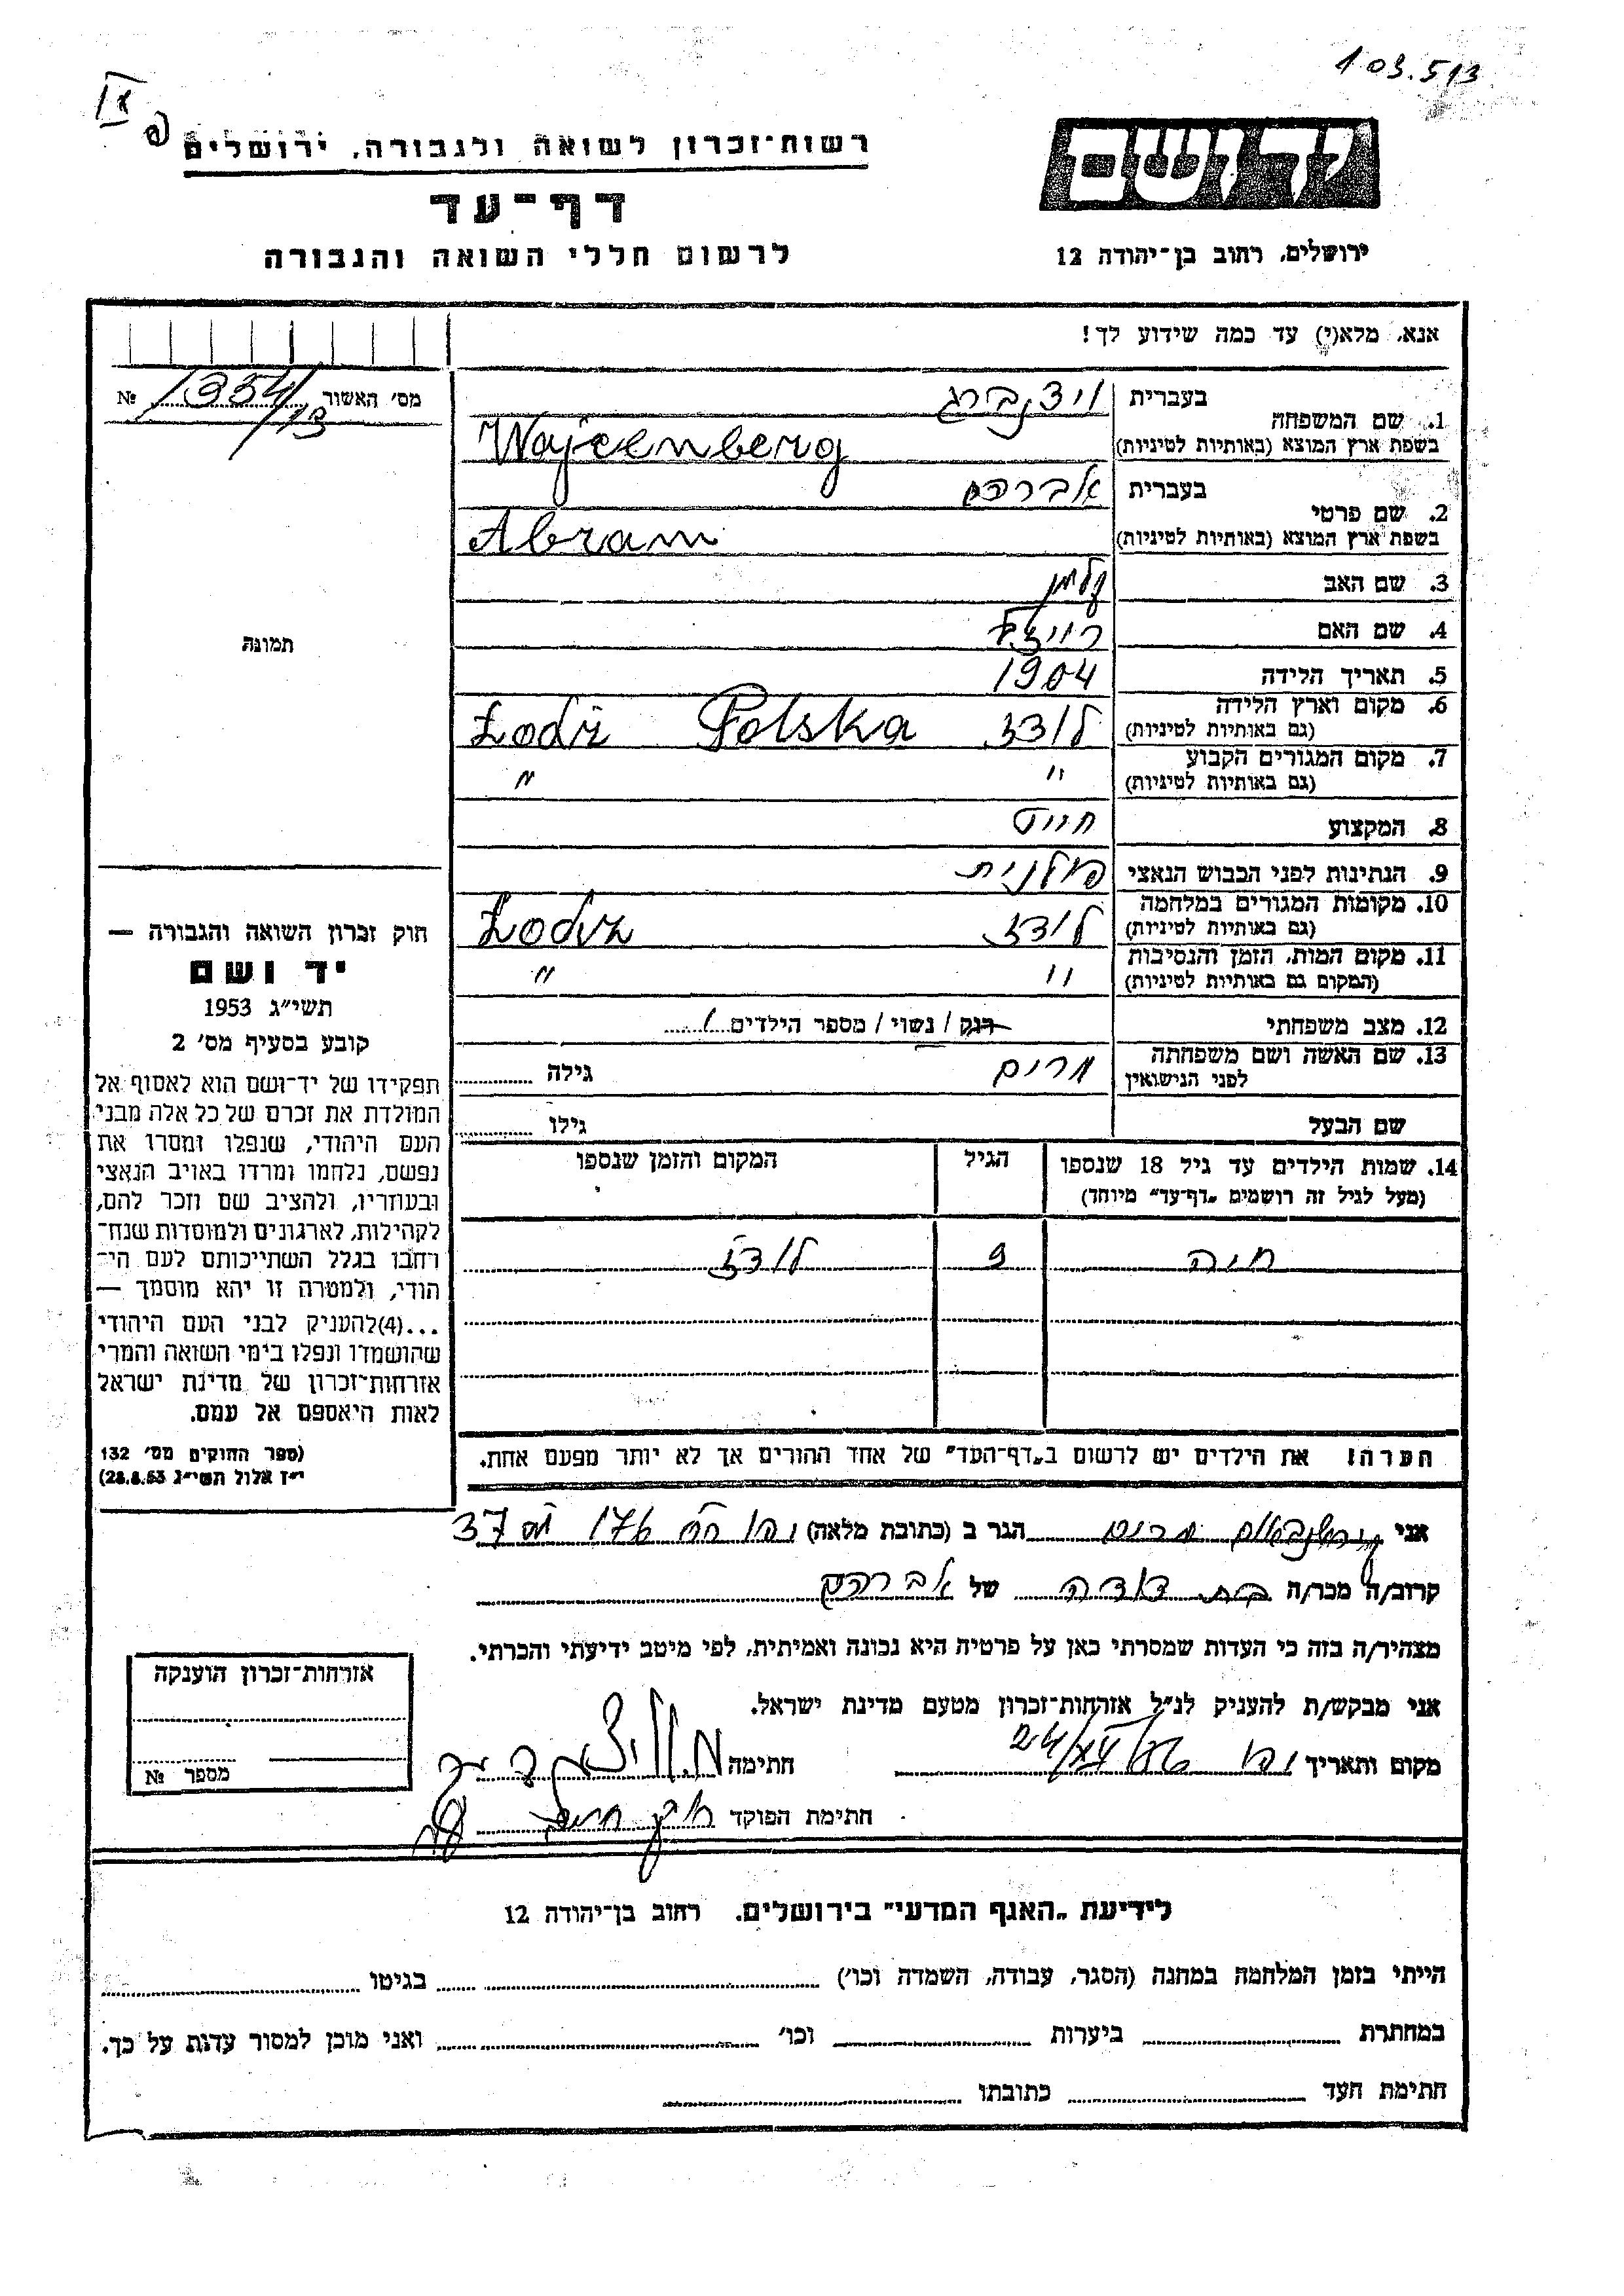 103.513
רשות־זכרון לשואה ולגבורה, ירושלים
דף־עד
לרשום חללי השואה והגבורה
יד ושם
ירושלים, רחוב בן־יהודה 12
אנא, מלא(י) עד כמה שידוע לך!
מס' האשור 1354/13 №
תמונה
חוק זכרון השואה והגבורה —
יד ושם
תשי״ג 1953
קובע בסעיף מס' 2
תפקידו של יד־ושם הוא לאסוף אל
המולדת את זכרם של כל אלה מבני
העם היהודי, שנפלו ומסרו את
נפשם, נלחמו ומרדו באויב הנאצי
ובעוזריו, ולהציב שם וזכר להם,
לקהילות, לארגונים ולמוסדות שנח־
רבו בגלל השתייכותם לעם הי־
הודי, ולמטרה זו יהא מוסמך —
...(4)להעניק לבני העם היהודי
שהושמדו ונפלו בימי השואה והמרי
אזרחות־זכרון של מדינת ישראל
לאות היאספם אל עמם.
(ספר החוקים מס' 132
י״ז אלול תשי״ג 28.8.53)
1. שם המשפחה
בעברית ויצנברג
בשפת ארץ המוצא (באותיות לטיניות) Wajcenberg
2. שם פרטי
בעברית אברהם
בשפת ארץ המוצא (באותיות לטיניות) Abram
3. שם האב קלמן
4. שם האם
5. תאריך הלידה 1904
6. מקום וארץ הלידה
(גם באותיות לטיניות) לודז Polska Łodź
7. מקום המגורים הקבוע
(גם באותיות לטיניות) " "
8. המקצוע חייט
9. הנתינות לפני הכבוש הנאצי פולנית
10. מקומות המגורים במלחמה
(גם באותיות לטיניות) לודז Łodz
11. מקום המות, הזמן והנסיבות
(המקום גם באותיות לטיניות) " "
12. מצב משפחתי רוק / נשוי / מספר הילדים 1
13. שם האשה ושם משפחתה
לפני הנישואין מרים גילה
שם הבעל גילו
14. שמות הילדים עד גיל 18 שנספו הגיל המקום והזמן שנספו
(מעל לגיל זה רושמים „דף־עד״ מיוחד)
חיה 9 לודז
הערה! את הילדים יש לרשום ב„דף־העד״ של אחד ההורים אך לא יותר מפעם אחת.
אני מרים הגר ב (כתובת מלאה) 176 37
קרוב/ה מכר/ה בת דודה של אברהם
מצהיר/ה בזה כי העדות שמסרתי כאן על פרטיה היא נכונה ואמיתית, לפי מיטב ידיעתי והכרתי.
אני מבקש/ת להעניק לנ״ל אזרחות־זכרון מטעם מדינת ישראל.
מקום ותאריך חתימה
חתימת הפוקד
אזרחות־זכרון הוענקה
מספר №
לידיעת „האגף המדעי״ בירושלים. רחוב בן־יהודה 12
הייתי בזמן המלחמה במחנה (הסגר, עבודה, השמדה וכו') בגיטו
במחתרת ביערות וכו' ואני מוכן למסור עדות על כך.
חתימת העד כתובתו